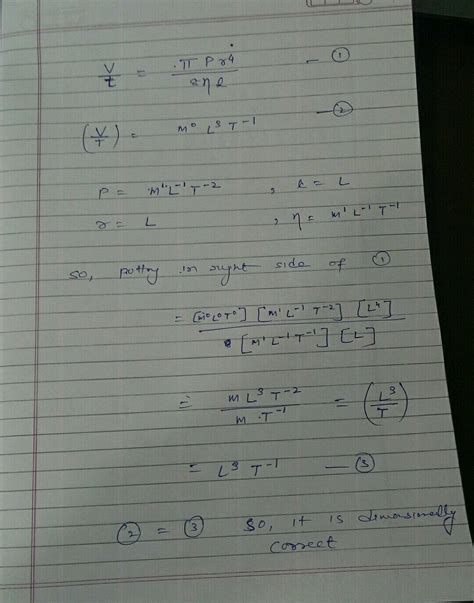 V/t = π P r⁴ / 8 η l — ①
(V/T) = M⁰ L³ T⁻¹ — ②
P = M¹ L⁻¹ T⁻² , l = L
r = L , η = M¹ L⁻¹ T⁻¹
So, putting in right side of ①
= [M⁰L⁰T⁰] [M¹ L⁻¹ T⁻²] [L⁴] / [M¹ L⁻¹ T⁻¹] [L]
= M L³ T⁻² / M · T⁻¹ = (L³/T)
= L³ T⁻¹ — ③
② = ③ So, it is dimensionally
correct